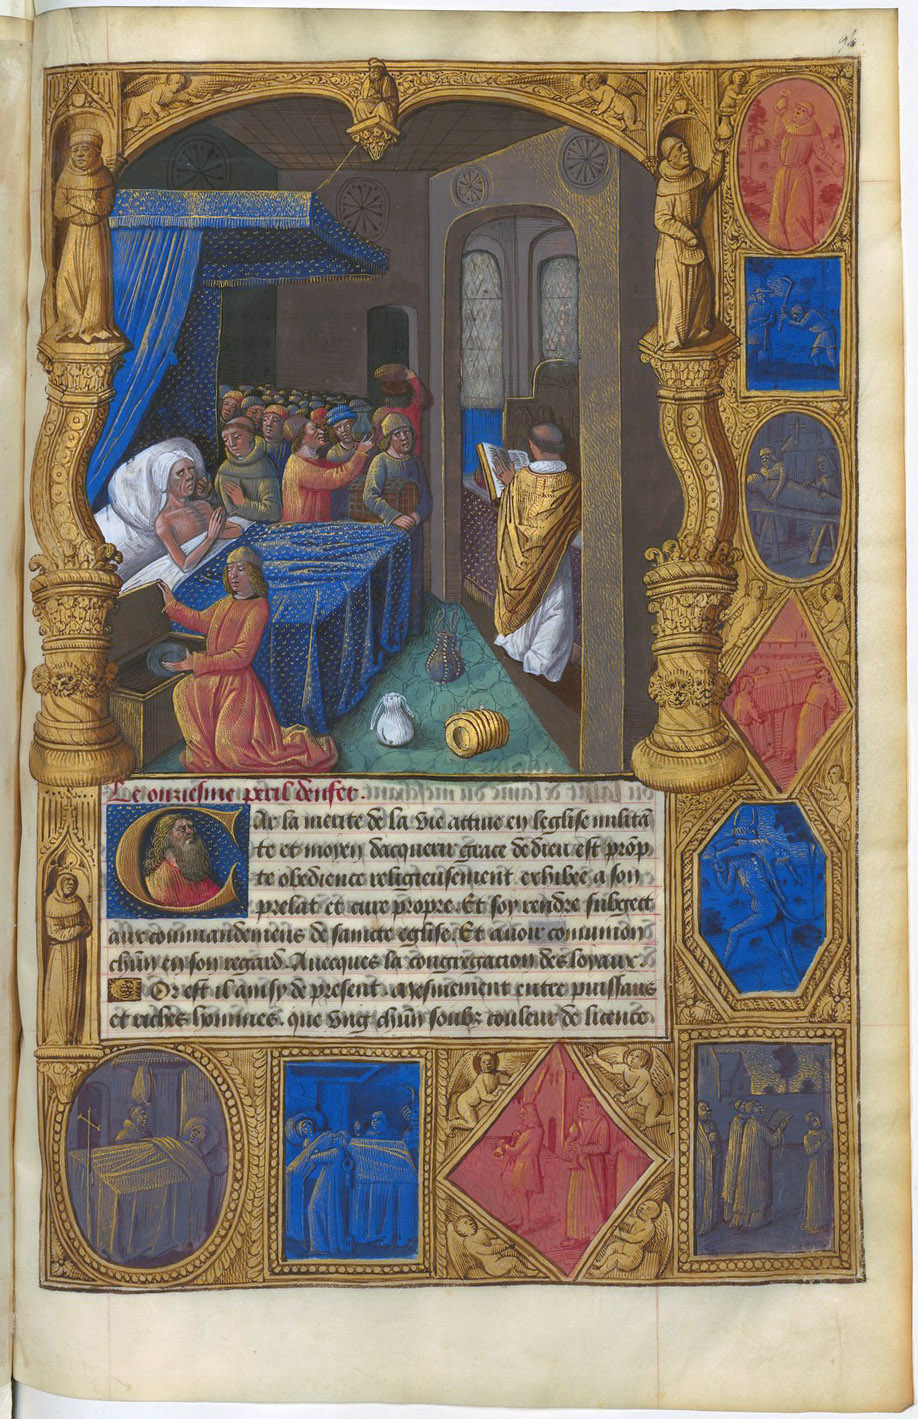 Le onziesme peril denfer.
CAr la merite de la vie actiue en leglise militā
te et moyen dacquerir grace de dieu est prōp
te obedience religieusement exhibee a son
prelat et cure propre. Et soy rendre subgect
aux commandemens de saincte eglise. Et auoir comunion
chūn en son regard. Auecques la congregation des loyaux.
Or est il ainsy de present mayesmement entre puissans
et riches hommes. que vng chūn soubz couleur de licence